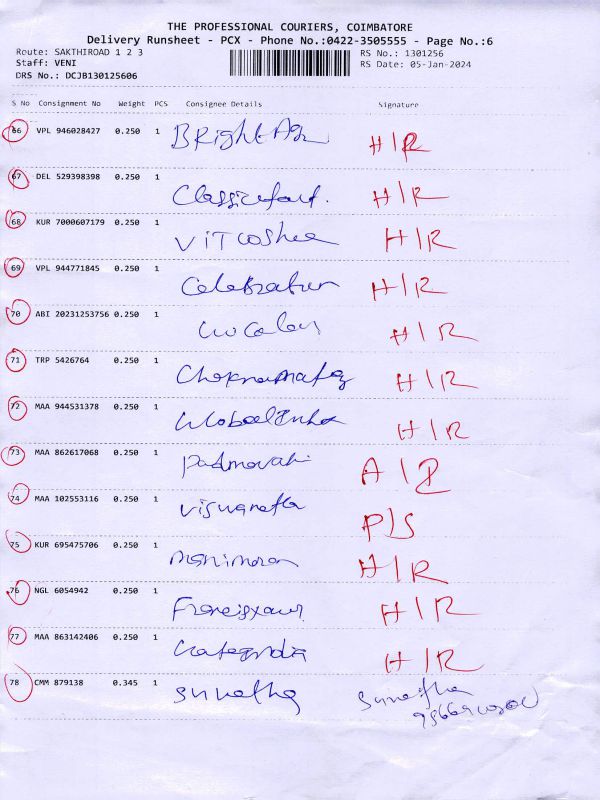 THE PROFESSIONAL COURIERS, COIMBATORE
Delivery Runsheet - PCX - Phone No.:0422-3505555 - Page No.:6
Route: SAKTHIROAD 1 2 3 RS No.: 1301256
Staff: VENI RS Date: 05-Jan-2024
DRS No.: DCJB130125606
S No Consignment No Weight PCS Consignee Details Signature
66 VPL 946028427 0.250 1 H/R
67 DEL 529398398 0.250 1 H/R
68 KUR 7000607179 0.250 1 H/R
69 VPL 944771845 0.250 1 Celebration H/R
70 ABI 20231253756 0.250 1 H/R
71 TRP 5426764 0.250 1 H/R
72 MAA 944531378 0.250 1 H/R
73 MAA 862617068 0.250 1 Padmavathi
74 MAA 102553116 0.250 1 P/S
75 KUR 695475706 0.250 1 H/R
76 NGL 6054942 0.250 1 H/R
77 MAA 863142406 0.250 1 H/R
78 CMM 879138 0.345 1